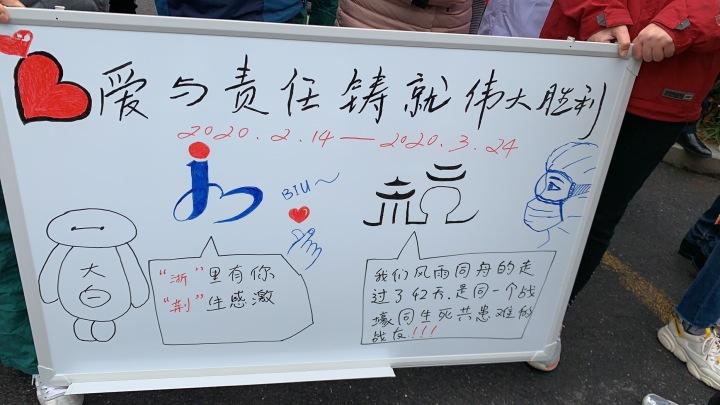 爱与责任铸就伟大胜利
2020.2.14—2020.3.24
BIU~
大
白
"浙"里有你
"荆"生感激
我们风雨同舟的走
过了42天.是同一个战
壕同生死共患难的
战友!!!